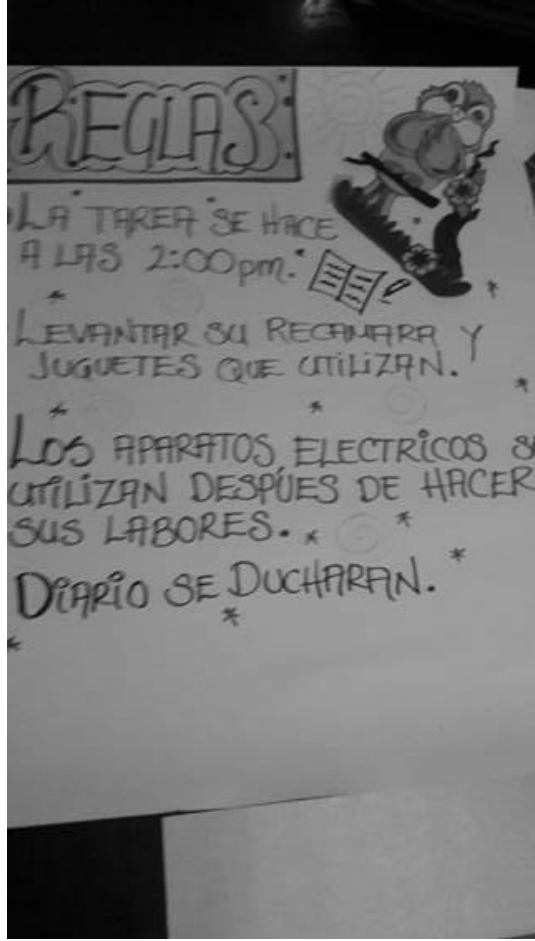 REGLAS:
"LA TAREA" SE HACE
A LAS 2:00pm.
LEVANTAR SU RECAMARA Y
JUGUETES QUE UTILIZAN.
LOS APARATOS ELECTRICOS
UTILIZAN DESPÚES DE HACER
SUS LABORES.
DIARIO SE DUCHARAN.